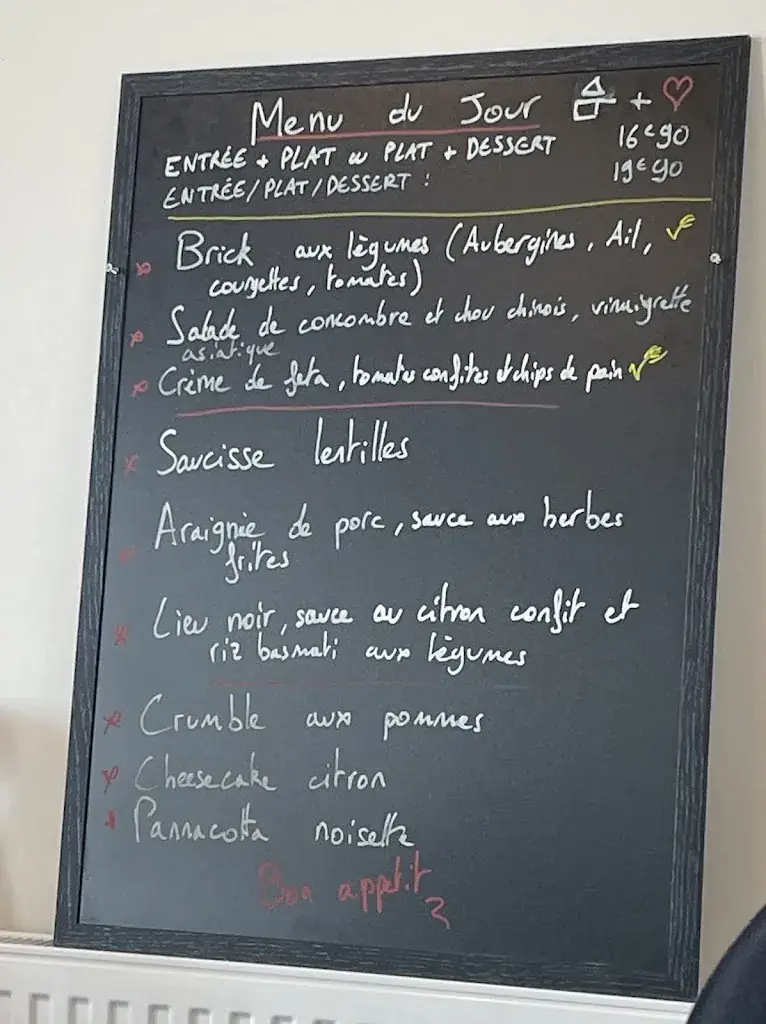 Menu du Jour +
ENTRÉE + PLAT ou PLAT + DESSERT 16€90
ENTRÉE/PLAT/DESSERT : 19€90
Brick aux légumes (Aubergines, Ail,
courgettes, tomates)
Salade de concombre et chou chinois, vinaigrette
asiatique
Crème de feta, tomates confites et chips de pain
Saucisse lentilles
Araignée de porc, sauce aux herbes
frites
Lieu noir, sauce au citron confit et
riz basmati aux légumes
Crumble aux pommes
Cheesecake citron
Pannacotta noisette
Bon appetit